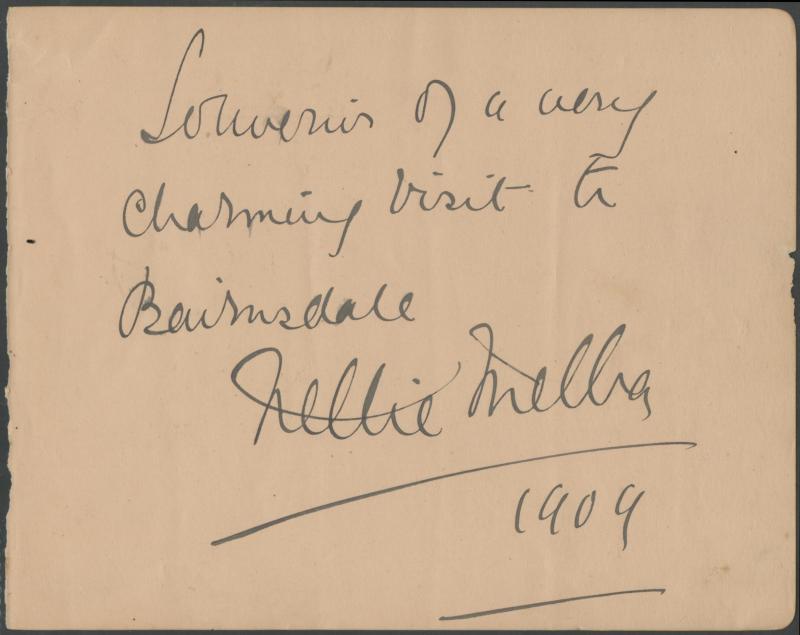 Souvenir of a very
charming visit to
Bairnsdale
Nellie Melba
1909